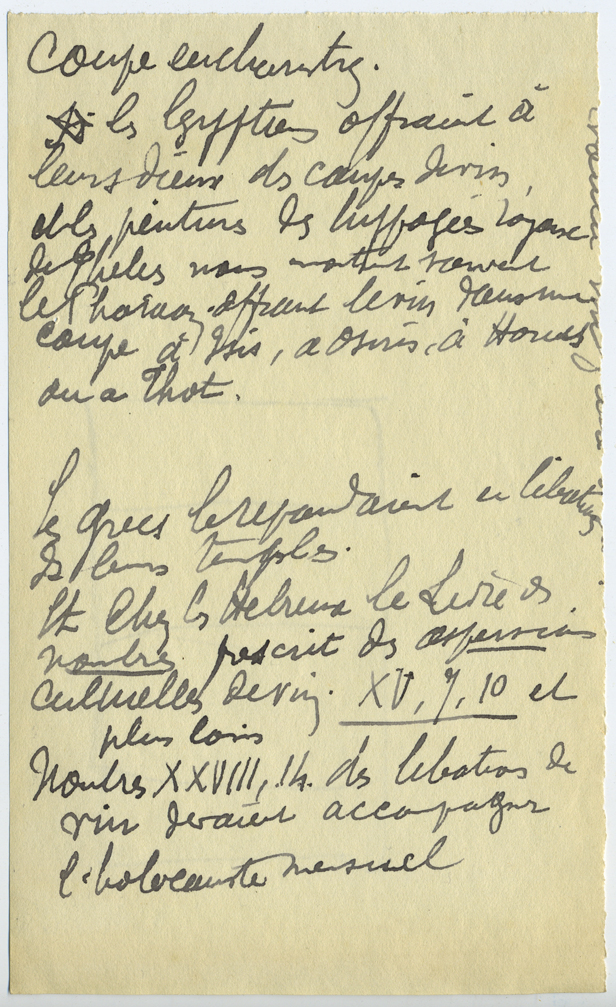 Coupe eucharistiq.
les Egyptiens offraient à
leurs dieux des coupes de vin,
et les peintures des hypogées royaux
de Thèbes nous montrent souvent
le Pharaon offrant le vin dans une
coupe à Isis, a Osiris, à Horus
ou a Thot.
Les grecs le repandaient en libations
ds leurs temples.
Et Chez les Hebreux le Livre des
nombres prescrit des aspersions
cultuelles de vin. XV, 7, 10 et
plus loin
Nombres XXVIII, 14. des libations de
vin devaient accompagner
l'holocauste mensuel